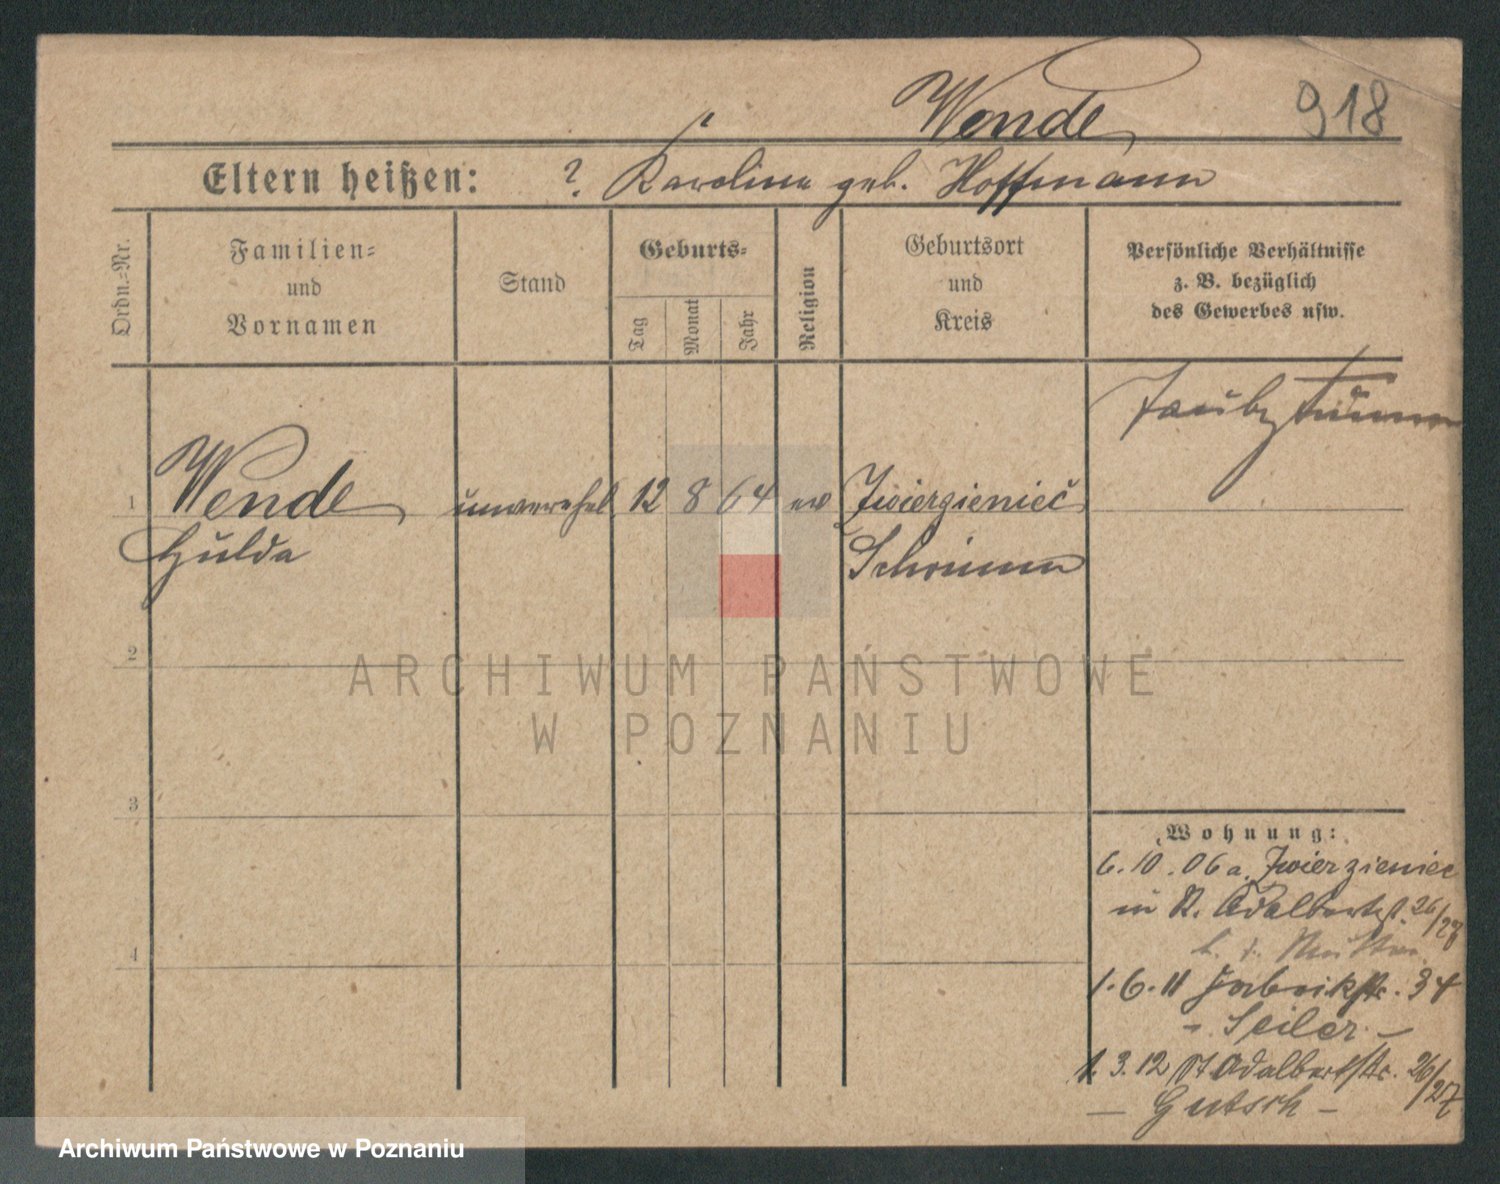 Wende 918
Eltern heißen: ? Karoline geb. Hoffmann
Ordn.-Nr.
Familien-
und
Vornamen
Stand
Geburts-
Tag
Monat
Jahr
Religion
Geburtsort
und
Kreis
Persönliche Verhältnisse
z. B. bezüglich
des Gewerbes usw.
taubstumm
1 Wende unverehel. 12 8 64 ev Zwierzieniec
Hulda Schrimm
2
3
4
ARCHIWUM PAŃSTWOWE
W POZNANIU
Wohnung:
6.10.06 a. Zwierzieniec
in St. Adalbertst. 26/27
b. d. Mutter
1.6.11 Fabrikstr. 34
- Seiler -
1.3.12 St Adalbertstr. 26/27
- Gutsch -
Archiwum Państwowe w Poznaniu